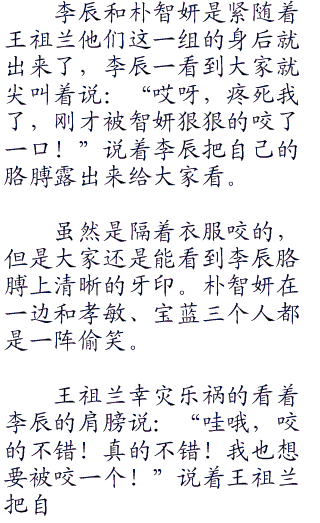 李辰和朴智妍是紧随着
王祖兰他们这一组的身后就
出来了，李辰一看到大家就
尖叫着说：“哎呀，疼死我
了，刚才被智妍狠狠的咬了
一口！”说着李辰把自己的
胳膊露出来给大家看。
虽然是隔着衣服咬的，
但是大家还是能看到李辰胳
膊上清晰的牙印。朴智妍在
一边和孝敏、宝蓝三个人都
是一阵偷笑。
王祖兰幸灾乐祸的看着
李辰的肩膀说：“哇哦，咬
的不错！真的不错！我也想
要被咬一个！”说着王祖兰
把自